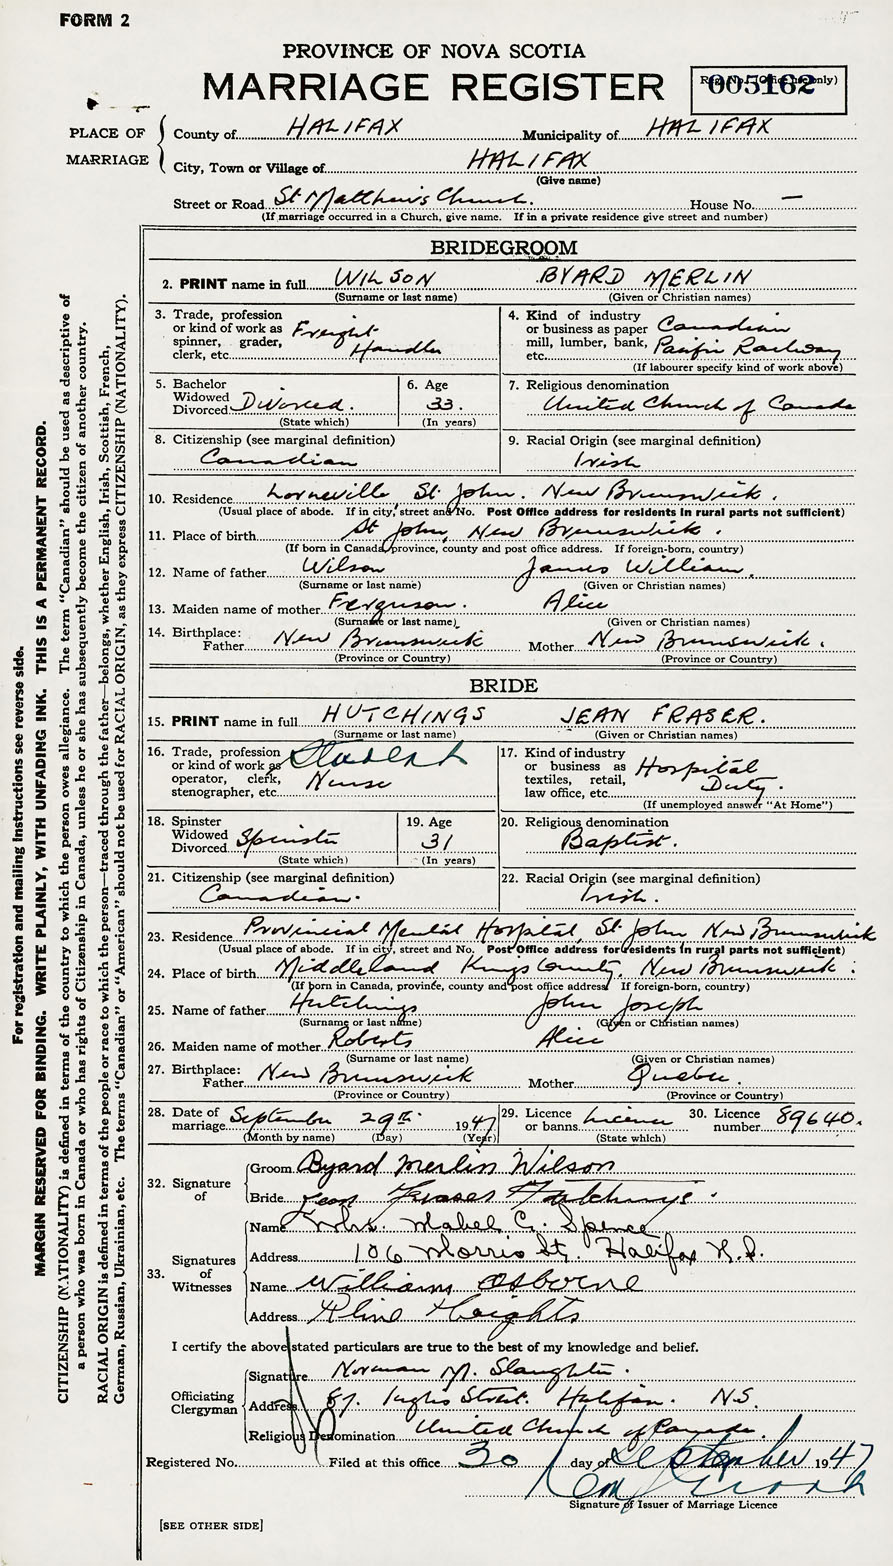 FORM 2
PROVINCE OF NOVA SCOTIA
MARRIAGE REGISTER
Reg. No. (Office use only)
005162
PLACE OF MARRIAGE
County of HALIFAX Municipality of HALIFAX
City, Town or Village of HALIFAX
(Give name)
Street or Road St Matthew's Church. House No. —
(If marriage occurred in a Church, give name. If in a private residence give street and number)
BRIDEGROOM
2. PRINT name in full WILSON BYARD MERLIN
(Surname or last name) (Given or Christian names)
3. Trade, profession or kind of work as spinner, grader, clerk, etc. Freight Handler
4. Kind of industry or business as paper mill, lumber, bank, etc. Canadian Pacific Railway
(If labourer specify kind of work above)
5. Bachelor Widowed Divorced Divorced.
(State which)
6. Age 33.
(In years)
7. Religious denomination
United Church of Canada
8. Citizenship (see marginal definition)
Canadian
9. Racial Origin (see marginal definition)
Irish
10. Residence Lorneville St John. New Brunswick.
(Usual place of abode. If in city, street and No. Post Office address for residents in rural parts not sufficient)
11. Place of birth St John, New Brunswick.
(If born in Canada, province, county and post office address. If foreign-born, country)
12. Name of father Wilson James William.
(Surname or last name) (Given or Christian names)
13. Maiden name of mother Ferguson. Alice
(Surname or last name) (Given or Christian names)
14. Birthplace: Father New Brunswick Mother New Brunswick.
(Province or Country) (Province or Country)
BRIDE
15. PRINT name in full HUTCHINGS JEAN FRASER.
(Surname or last name) (Given or Christian names)
16. Trade, profession or kind of work as operator, clerk, stenographer, etc. Student Nurse
17. Kind of industry or business as textiles, retail, law office, etc. Hospital Duty.
(If unemployed answer "At Home")
18. Spinster Widowed Divorced Spinster
(State which)
19. Age 31
(In years)
20. Religious denomination
Baptist.
21. Citizenship (see marginal definition)
Canadian.
22. Racial Origin (see marginal definition)
Irish.
23. Residence Provincial Mental Hospital, St. John New Brunswick
(Usual place of abode. If in city, street and No. Post Office address for residents in rural parts not sufficient)
24. Place of birth Middleland Kings County, New Brunswick.
(If born in Canada, province, county and post office address If foreign-born, country)
25. Name of father Hutchings John Joseph
(Surname or last name) (Given or Christian names)
26. Maiden name of mother Roberts Alice
(Surname or last name) (Given or Christian names)
27. Birthplace: Father New Brunswick Mother Quebec.
(Province or Country) (Province or Country)
28. Date of marriage September 29th. 1947
(Month by name) (Day) (Year)
29. Licence or banns Licence
(State which)
30. Licence number 89640.
32. Signature of
Groom Byard Merlin Wilson
Bride Jean Fraser Hutchings.
33. Signatures of Witnesses
Name Mrs. Mabel G. Spence
Address 106 Morris St. Halifax N.S.
Name William Osborne
Address Heights
I certify the above stated particulars are true to the best of my knowledge and belief.
Officiating Clergyman
Signature Norman M. Slaughter.
Address 87. Inglis Street. Halifax. N.S.
Religious Denomination United Church of Canada.
Registered No. Filed at this office 30 day of September 1947
Signature of Issuer of Marriage Licence
[SEE OTHER SIDE]
For registration and mailing instructions see reverse side.
MARGIN RESERVED FOR BINDING. WRITE PLAINLY, WITH UNFADING INK. THIS IS A PERMANENT RECORD.
CITIZENSHIP (NATIONALITY) is defined in terms of the country to which the person owes allegiance. The term "Canadian" should be used as descriptive of
a person who was born in Canada or who has rights of Citizenship in Canada, unless he or she has subsequently become the citizen of another country.
RACIAL ORIGIN is defined in terms of the people or race to which the person—traced through the father—belongs, whether English, Irish, Scottish, French,
German, Russian, Ukrainian, etc. The terms "Canadian" or "American" should not be used for RACIAL ORIGIN, as they express CITIZENSHIP (NATIONALITY).